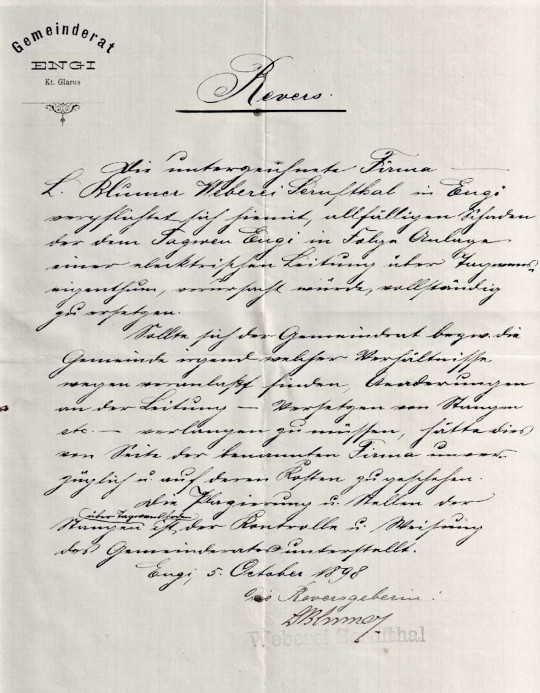 Gemeinderat
ENGI
Kt. Glarus
Revers.
Die unterzeichnete Firma
L. Blumer Weberei Sernfthal in Engi
verpflichtet sich hiemit, allfälligen Schaden
der dem Tagwen Engi in Folge Anlage
einer elektrischen Leitung über Tagwens-
eigenthum, verursacht würde, vollständig
zu ersetzen.
Sollte sich der Gemeindrat bezw. die
Gemeinde irgend welcher Verhältnisse
wegen veranlasst finden, Aenderungen
an der Leitung — Versetzen von Stangen
etc. — verlangen zu müssen, hätte dies
von Seite der benannten Firma unver-
züglich u. auf deren Kosten zu geschehen.
Die Plazierung u. Stellen der
über Tagwensboden
Stangen ist der Kontrolle u. Weisung
des Gemeinderates unterstellt.
Engi, 5. October 1898
Die Reversgeberin:
Blumer
Weberei Sernfthal